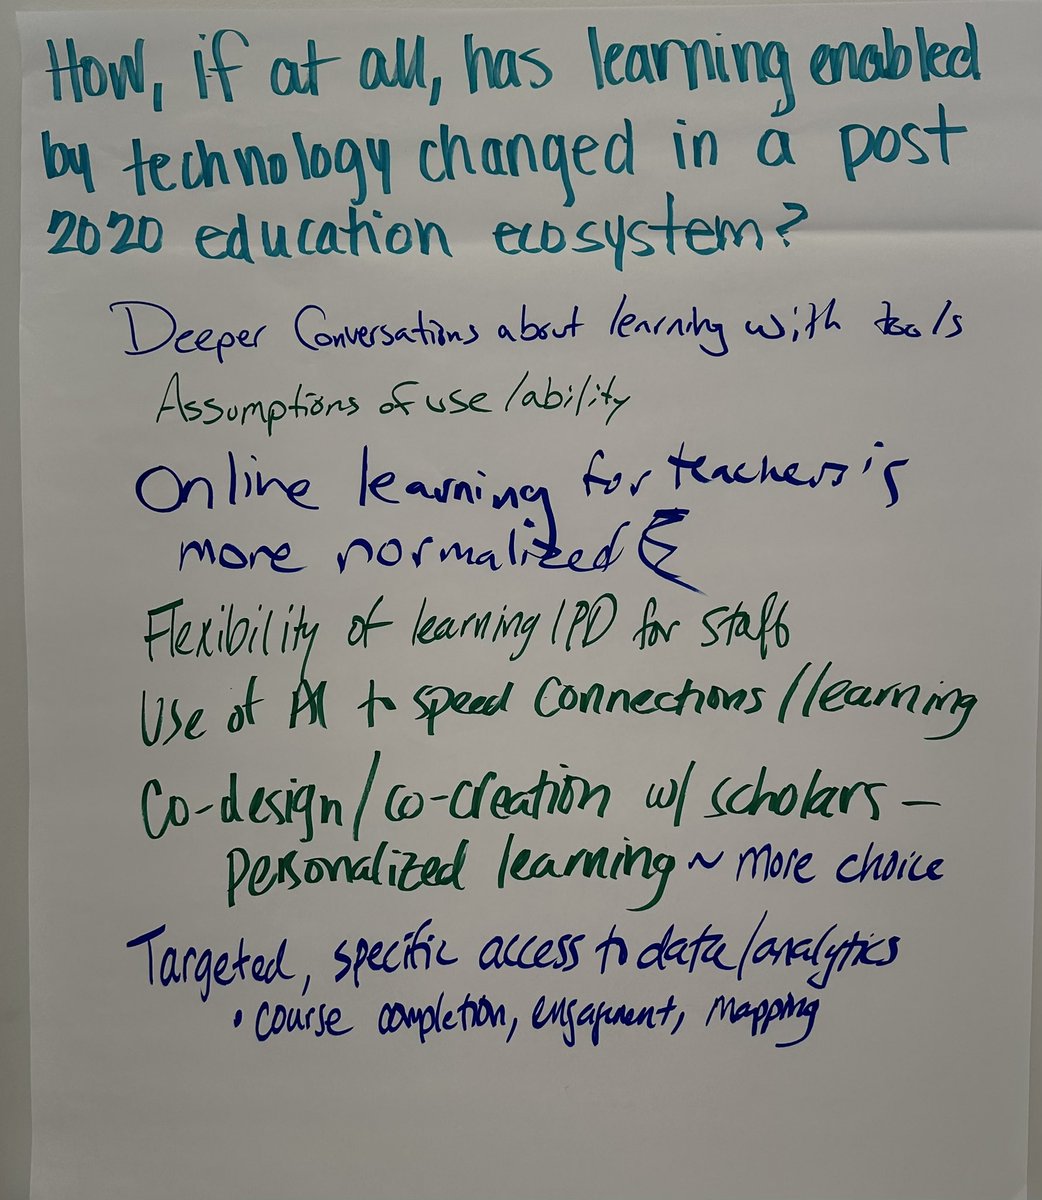 How, if at all, has learning enabled
by technology changed in a post
2020 education ecosystem?
Deeper Conversations about learning with tools
Assumptions of use/ability
Online learning for teachers is
more normalized
Flexibility of learning/PD for staff
Use of AI to speed connections//learning
Co-design/co-creation w/ scholars –
personalized learning ~ more choice
Targeted, specific access to data/analytics
• course completion, engagement, mapping